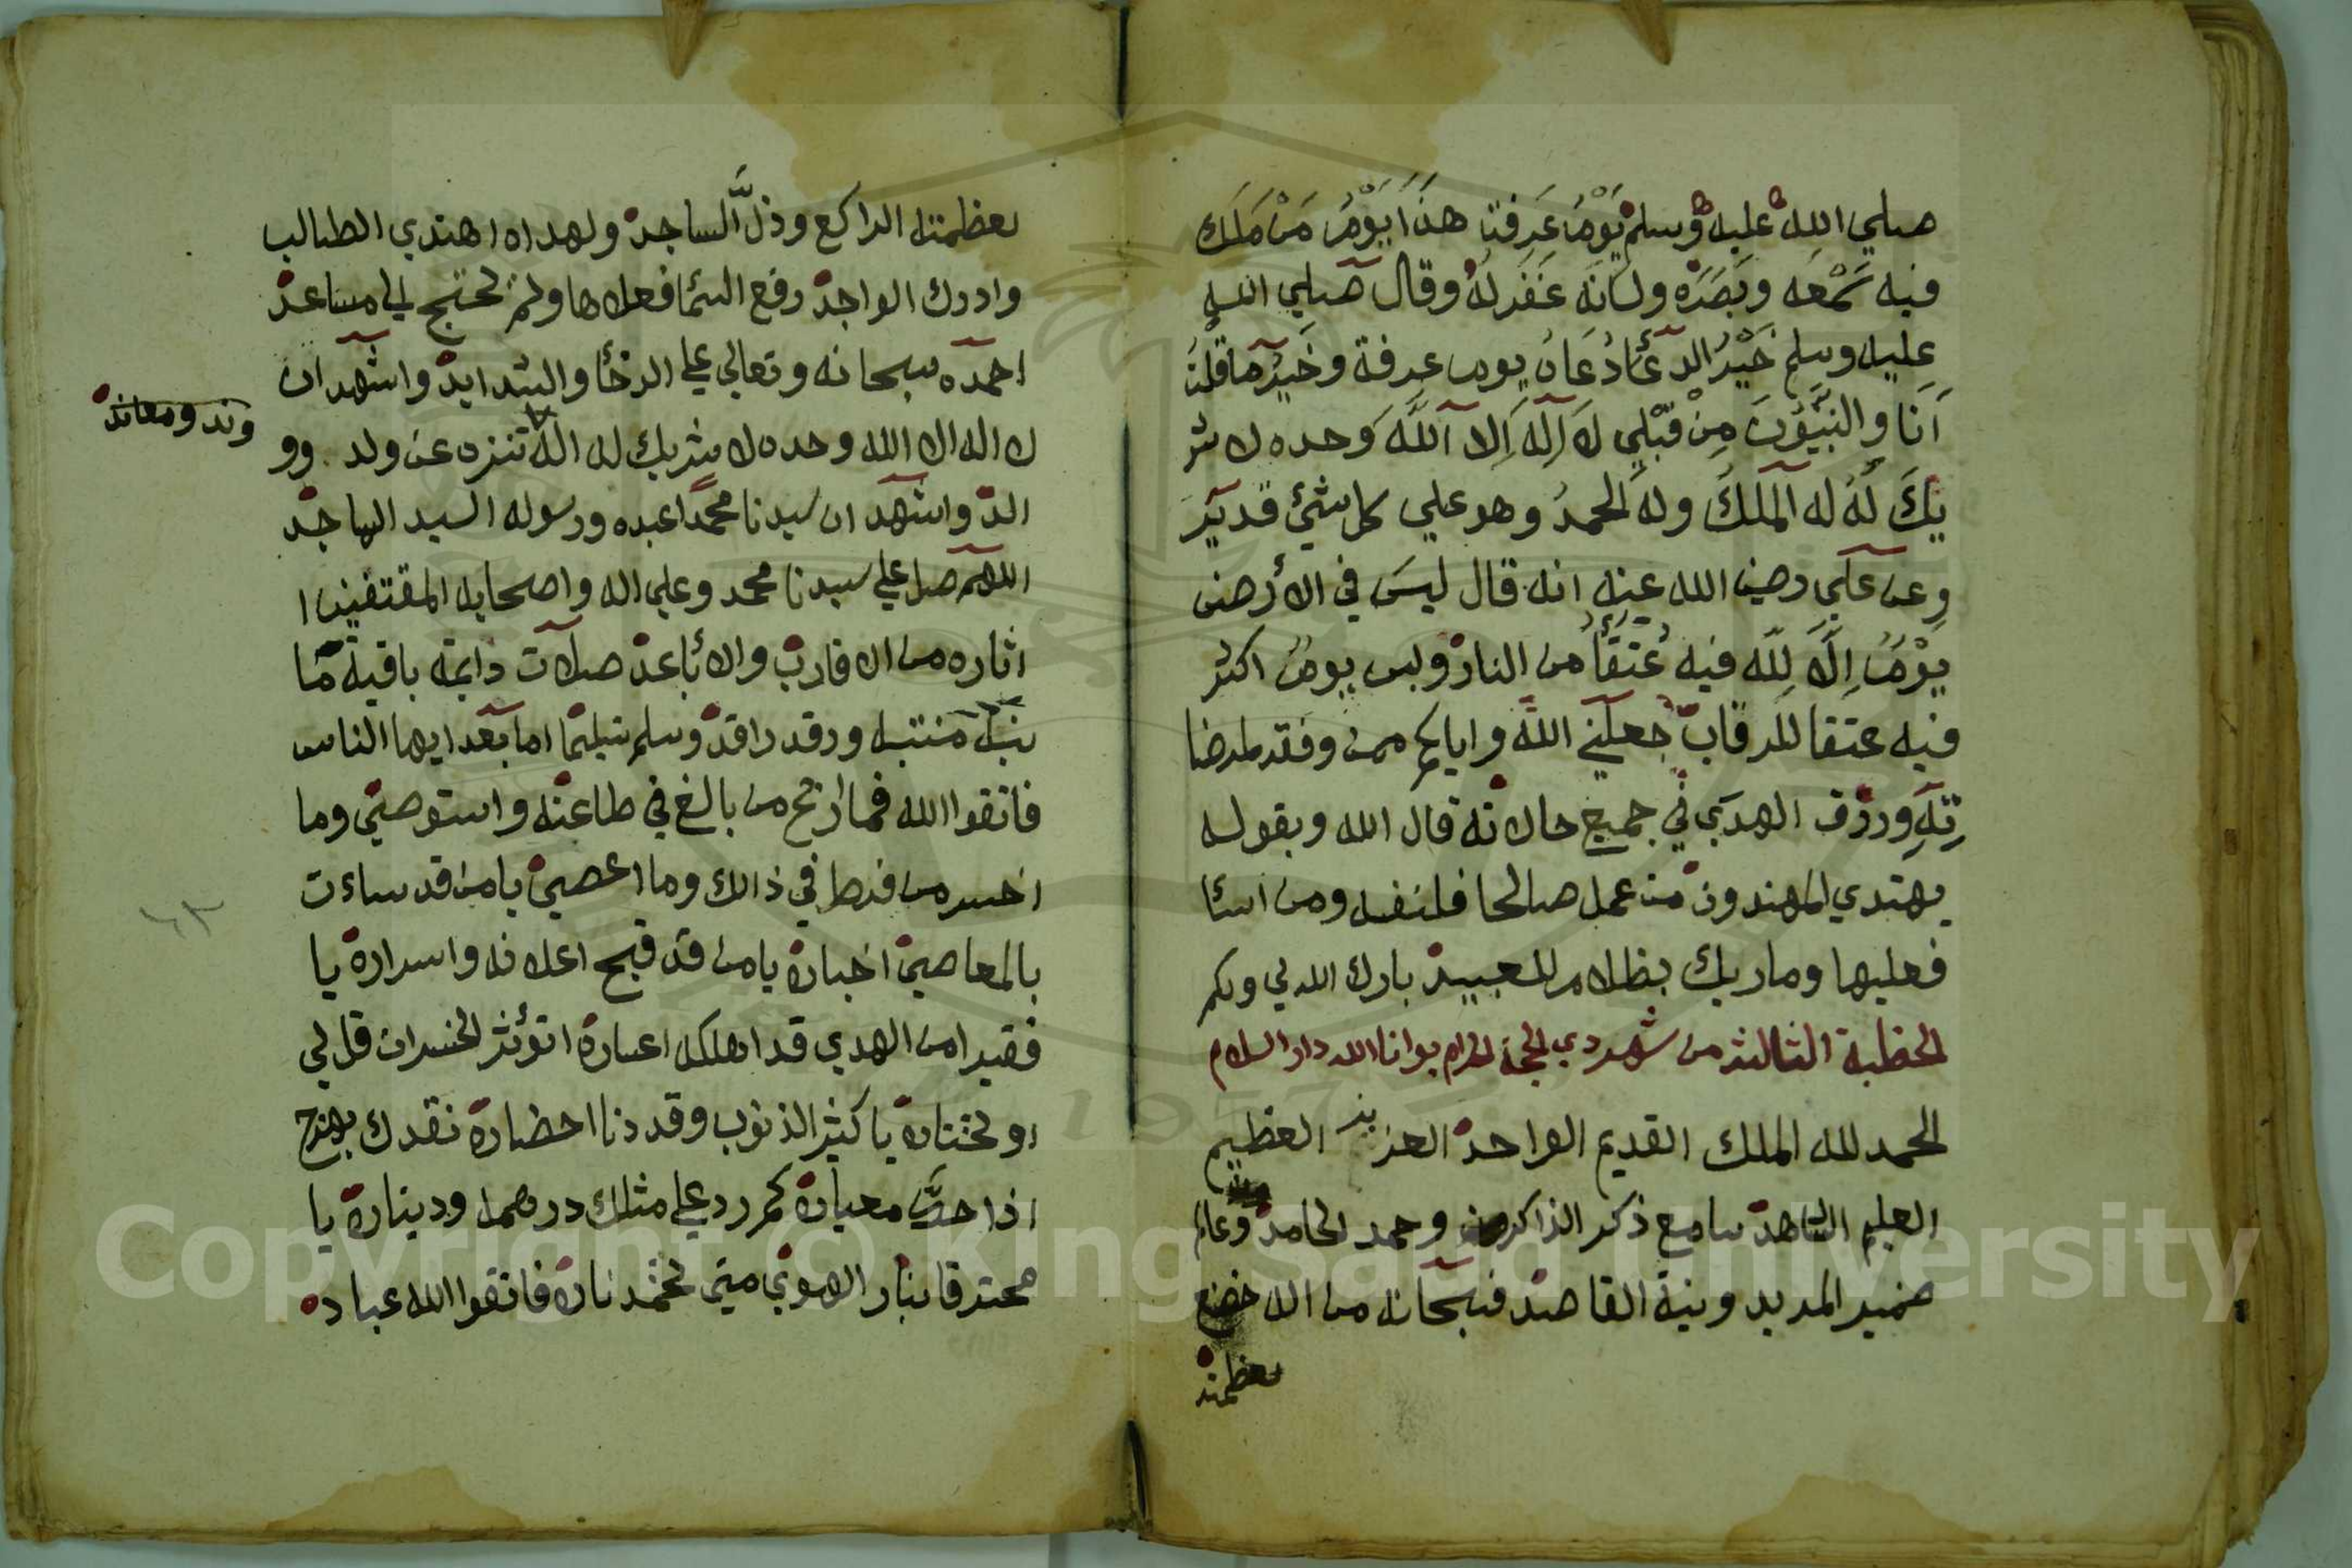 صلي الله عليه وسلم يَوْمُ عَرفة هذَا يَوْمٌ مَنْ مَلَكَ
فيه سَمْعَه وبَصَرَه ولسَانَه غَفَرلَهُ وقال صلي الله
عليه وسلم خَيْرُ الدعَّاءُ دُعَاءُ يوم عرفة وخَيْرُ مَا قُلْتُ
أَنَا وِالنبَيُّونَ مِنْ قَبْلِي لاَ اِلَه إَلا اللَّه وَحده لا شر
يكَ لَهُ له المَلْكَ وله الحمدُ وهو علي كل شيْء قديرَ
وعن علَي رضي الله عنه انه قال ليسَ في الأرض
يَوْمُ إلاَّ لِلَّه فيه عُتَقَاُ من النار وليس يومُ اكثر
فيه عتقا للرقاب جعلني اللَّه واياكم ممن وفقه لمرضا
تِهِ ورزق الهدَي في جميع حالاته قال الله وبقوله
يهتدي المهتدون من عمل صالحا فلنفسه ومن اسآ
فعليها وما ربك بظلام للعبيد بارك الله لي ولكم
الخطبة الثالثه من شهر دي الحجة الحرام بوانا الله دار السلام
الحمد لله الملك القديم الواحد العزيز العظيم
العليم الشاهد سامع ذكر الذاكر وحمد الحامد وعالم
ضمير المريد ونية القاصد فسبحانه من اله خضع
بعظمته
بعظمته الراكع وذلَّ الساجد ولهداه اهتدي الطالب
وادرك الواجد رفع السمآ فعلاها ولم يحتج الي مساعد
احمده سبحانه وتعالي علي الرخأ والشدايد واشهد ان
لا اله الا الله وحده لا شريك له الهٌ تنزه عن ولد وو
وند ومعاند
الد واشهد ان سيدنا محمدًا عبده ورسوله السيد الماجد
اللهم صل علي سيدنا محمد وعلي اله واصحابه المقتفين ا
اثاره من الاقارب والأباعد صلات دايمة باقية مَا
نبه منتبه ورقد راقد وسلم تسليمًا اما بعد ايها الناس
فاتقوا الله فما اربح من بالغ في طاعته واستوصي وما
اخسر من فرط في ذالك وما اعصي يا من قد ساءت
بالمعاصي اخباره يا من قد قبح اعلانه واسراره يا
فقيرا من الهدي قد اهلكه اعساره اتؤثر الخسران قل لي
او تختاره يا كثير الذنوب وقد دنا احضاره نقدك بهرج
اذا حكَّ معياره كم رد علي مثلك درهمه وديناره يا
محترقا بنار الهوي متي تخمد ناره فاتقوا الله عباده